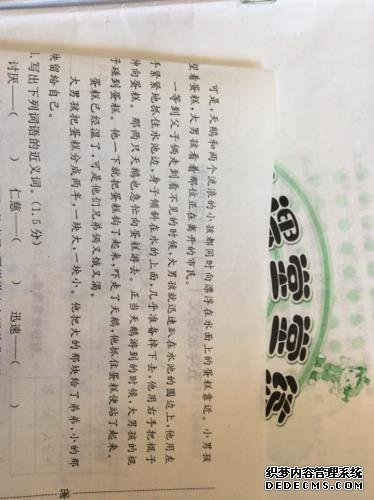 课堂堂练
可是,天鹅和两个流浪的小孩都同时向漂浮在水面上的蛋糕靠近。小男孩
望着蛋糕,大男孩看着那位正在离开的市民。
一等到父子俩走到看不见的时候,大男孩就迅速趴在水池的圆边上,他用左
手紧紧地抓住水池边,身子倾斜在水的上面,几乎准备掉下去,他用右手把棍子
伸向蛋糕。那两只天鹅也急忙向蛋糕游去。正当天鹅游到的时候,大男孩的棍
子碰到蛋糕。他一下就把蛋糕钩了起来,吓走了天鹅,他抓住蛋糕便站了起来。
蛋糕已经湿了,可是他们兄弟俩又饿又渴。
大男孩把蛋糕分成两半,一块大,一块小。他把大的那块给了弟弟,小的那
块留给自己。
1.写出下列词语的近义词。(1.5分)
讨厌——( ) 仁慈——( ) 迅速——( )
织梦内容管理系统
DEDECMS.COM